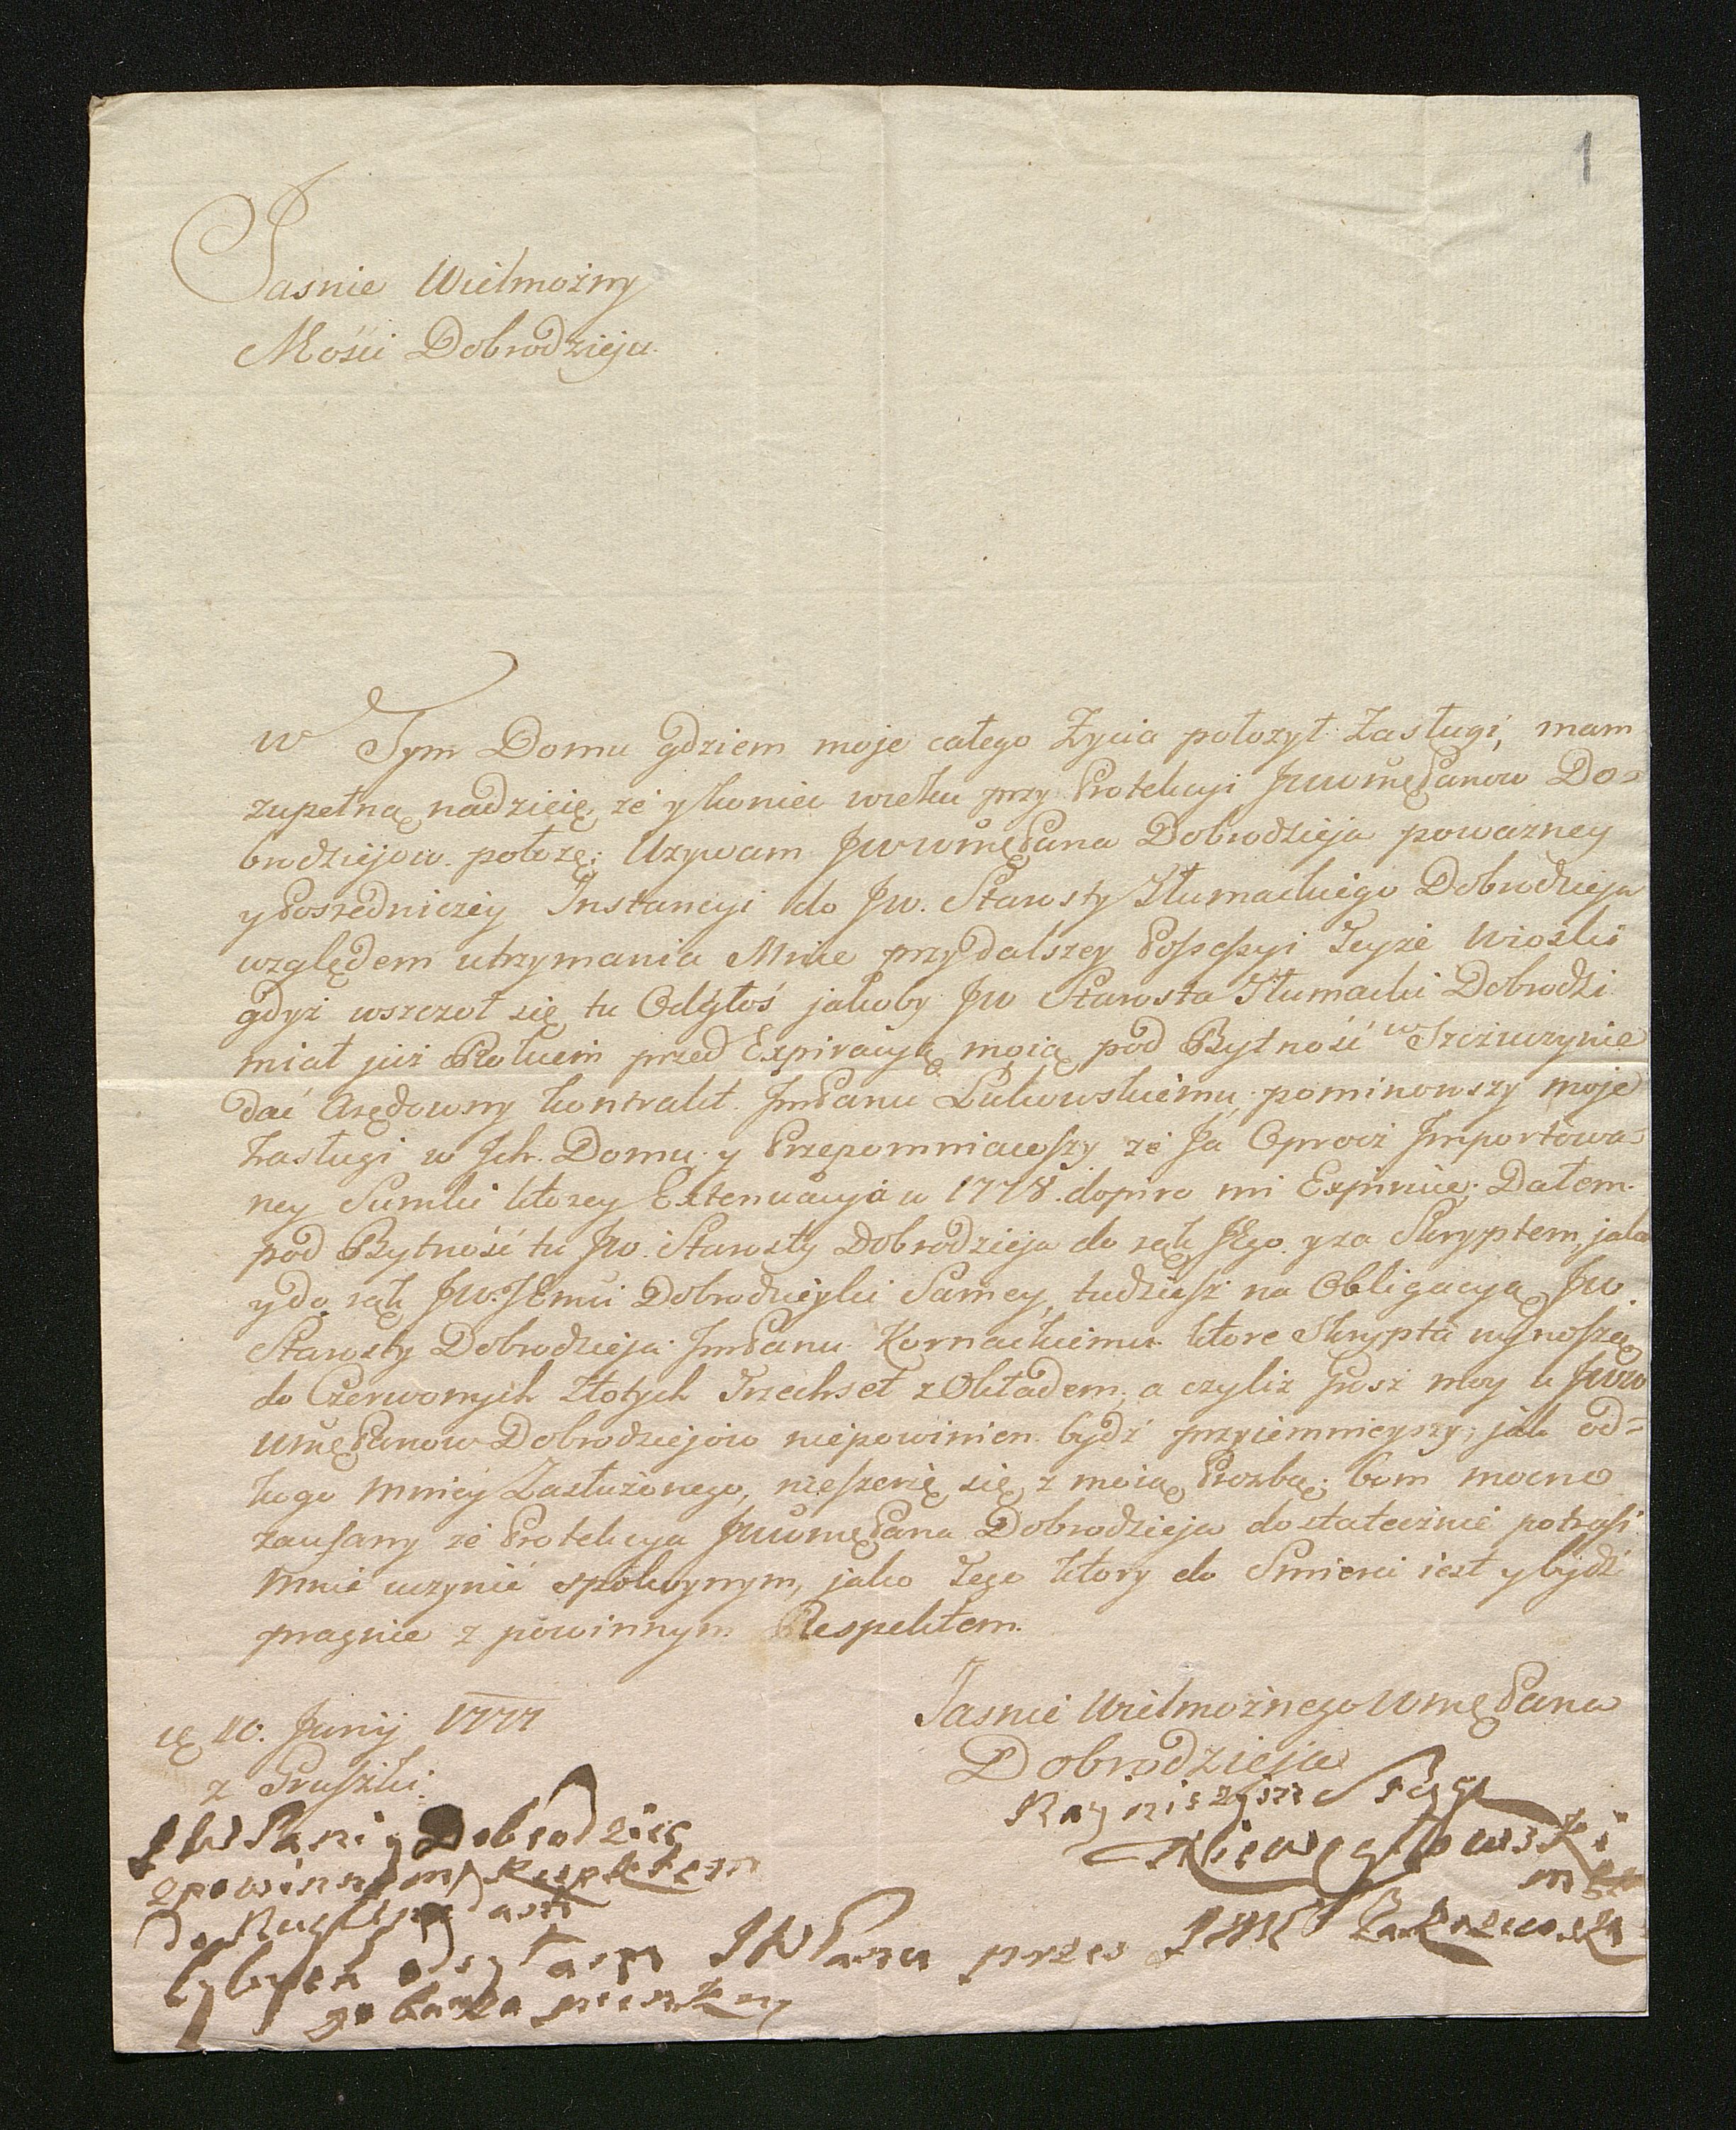 1
Jasnie Wielmożny
Mości Dobrodzieju.
w Tym Domu gdziem moje całego Życia położył Zasługi, mam
zupełną nadzieię, że y koniec wieku przy Protekcyi JWWmę Panow Do=
brodziejow położę; Używam JWWmę Pana Dobrodzieja poważney
y Posredniczey Instancyi do JW. Starosty Tłumackiego Dobrodzieja
względem utrzymania Mnie przy dalszey Possessyi Teyże Wioski
gdyż wszczoł się tu Odgłoś jakoby JW Starosta Tłumacki Dobrodzi
miał już Rokiem przed Expiracyą moią pod Bytność w Szczurzynie
dać Arędowny kontrakt JmPanu Lukowskiemu; pominowszy moje
Zasługi w Ich Domu y Przepomniawszy że Ja Oprocz Importowa=
ney Sumki ktorey Extenuacyia w 1778. dopiro mi Expiruie; Dałem
pod Bytność tu JW. Starosty Dobrodzieja do rąk JEgo y za Skryptem, jako
y do rąk JW. JEmci Dobrodzieyki Samey, tudziesz na Obligacyą JW.
Starosty Dobrodzieja JmPanu Kornackiemu ktore Skrypta wynoszą
do Czerwonych Złotych Trzechset z Okładem; a czyliż Grosz moy u JWW
Wmę Panow Dobrodziejow niepowinien bydź przyiemnieyszy; jak od=
kogo Mniey Zasłużonego, nieszerzę się z moią Prozbą; bom mocno
zaufany że Protekcya JWWmę Pana Dobrodzieja dostatecznie potrafi
Mnie uczynić spokoynym, jako Tego ktory do Smierci iest y bydź
pragnie z powinnym Respektem.
Jasnie Wielmożnego Wmę Pana
Dobrodzieja
10. Junij 1777
z Gruszki.
Nayniszszym Sługą
Niewęgłowski
mp
JW Pani y Dobrodzice
z powinnym Respektem
do Nug Upadam
odsyłam JW Panu przes JMC Zakrzewsk